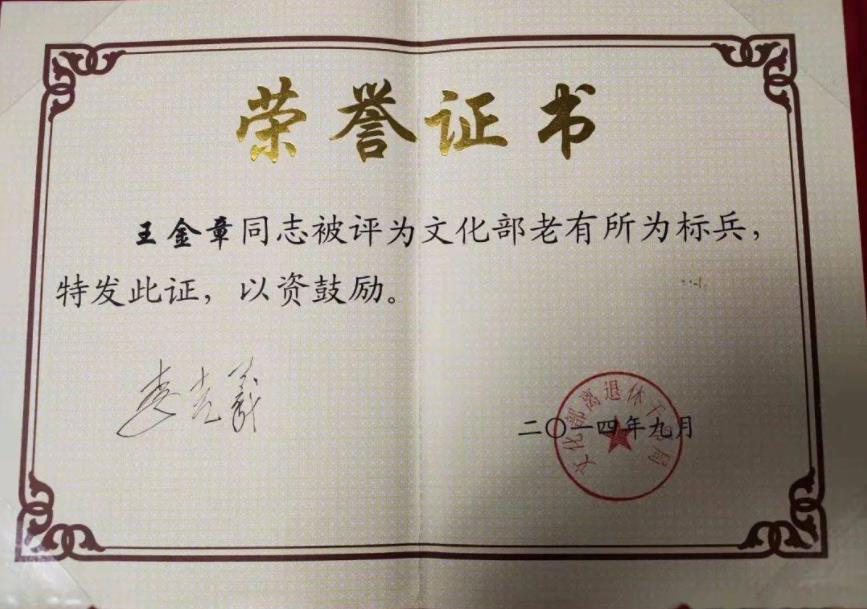 荣誉证书
王金章同志被评为文化部老有所为标兵，
特发此证，以资鼓励。
二〇一四年九月
文化部离退休干部局